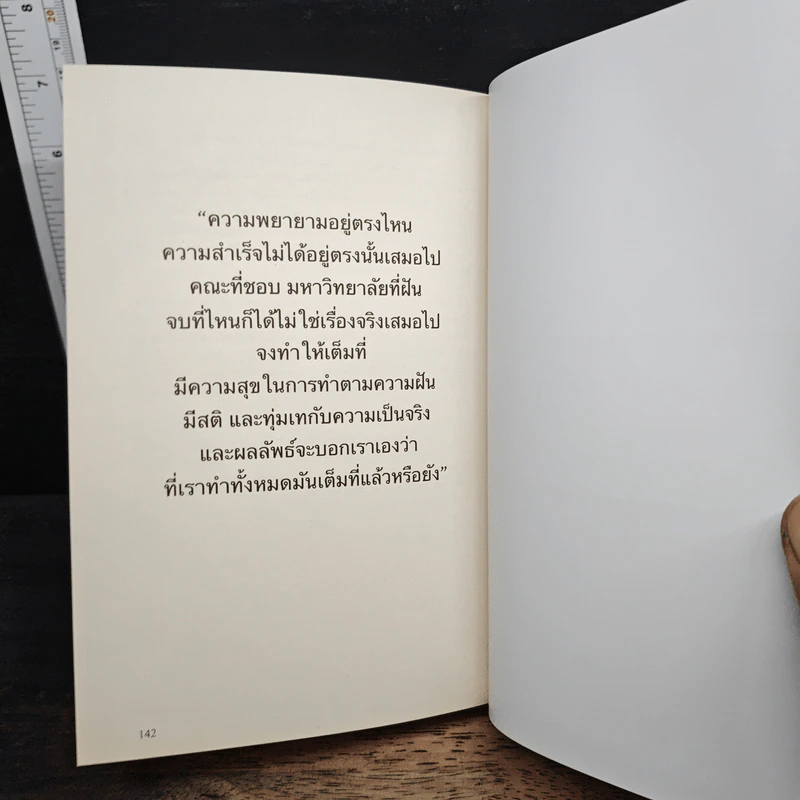 “ความพยายามอยู่ตรงไหน
ความสำเร็จไม่ได้อยู่ตรงนั้นเสมอไป
คณะที่ชอบ มหาวิทยาลัยที่ฝัน
จบที่ไหนก็ได้ไม่ใช่เรื่องจริงเสมอไป
จงทำให้เต็มที่
มีความสุขในการทำตามความฝัน
มีสติ และทุ่มเทกับความเป็นจริง
และผลลัพธ์จะบอกเราเองว่า
ที่เราทำทั้งหมดมันเต็มที่แล้วหรือยัง”
142
8
7
6
20